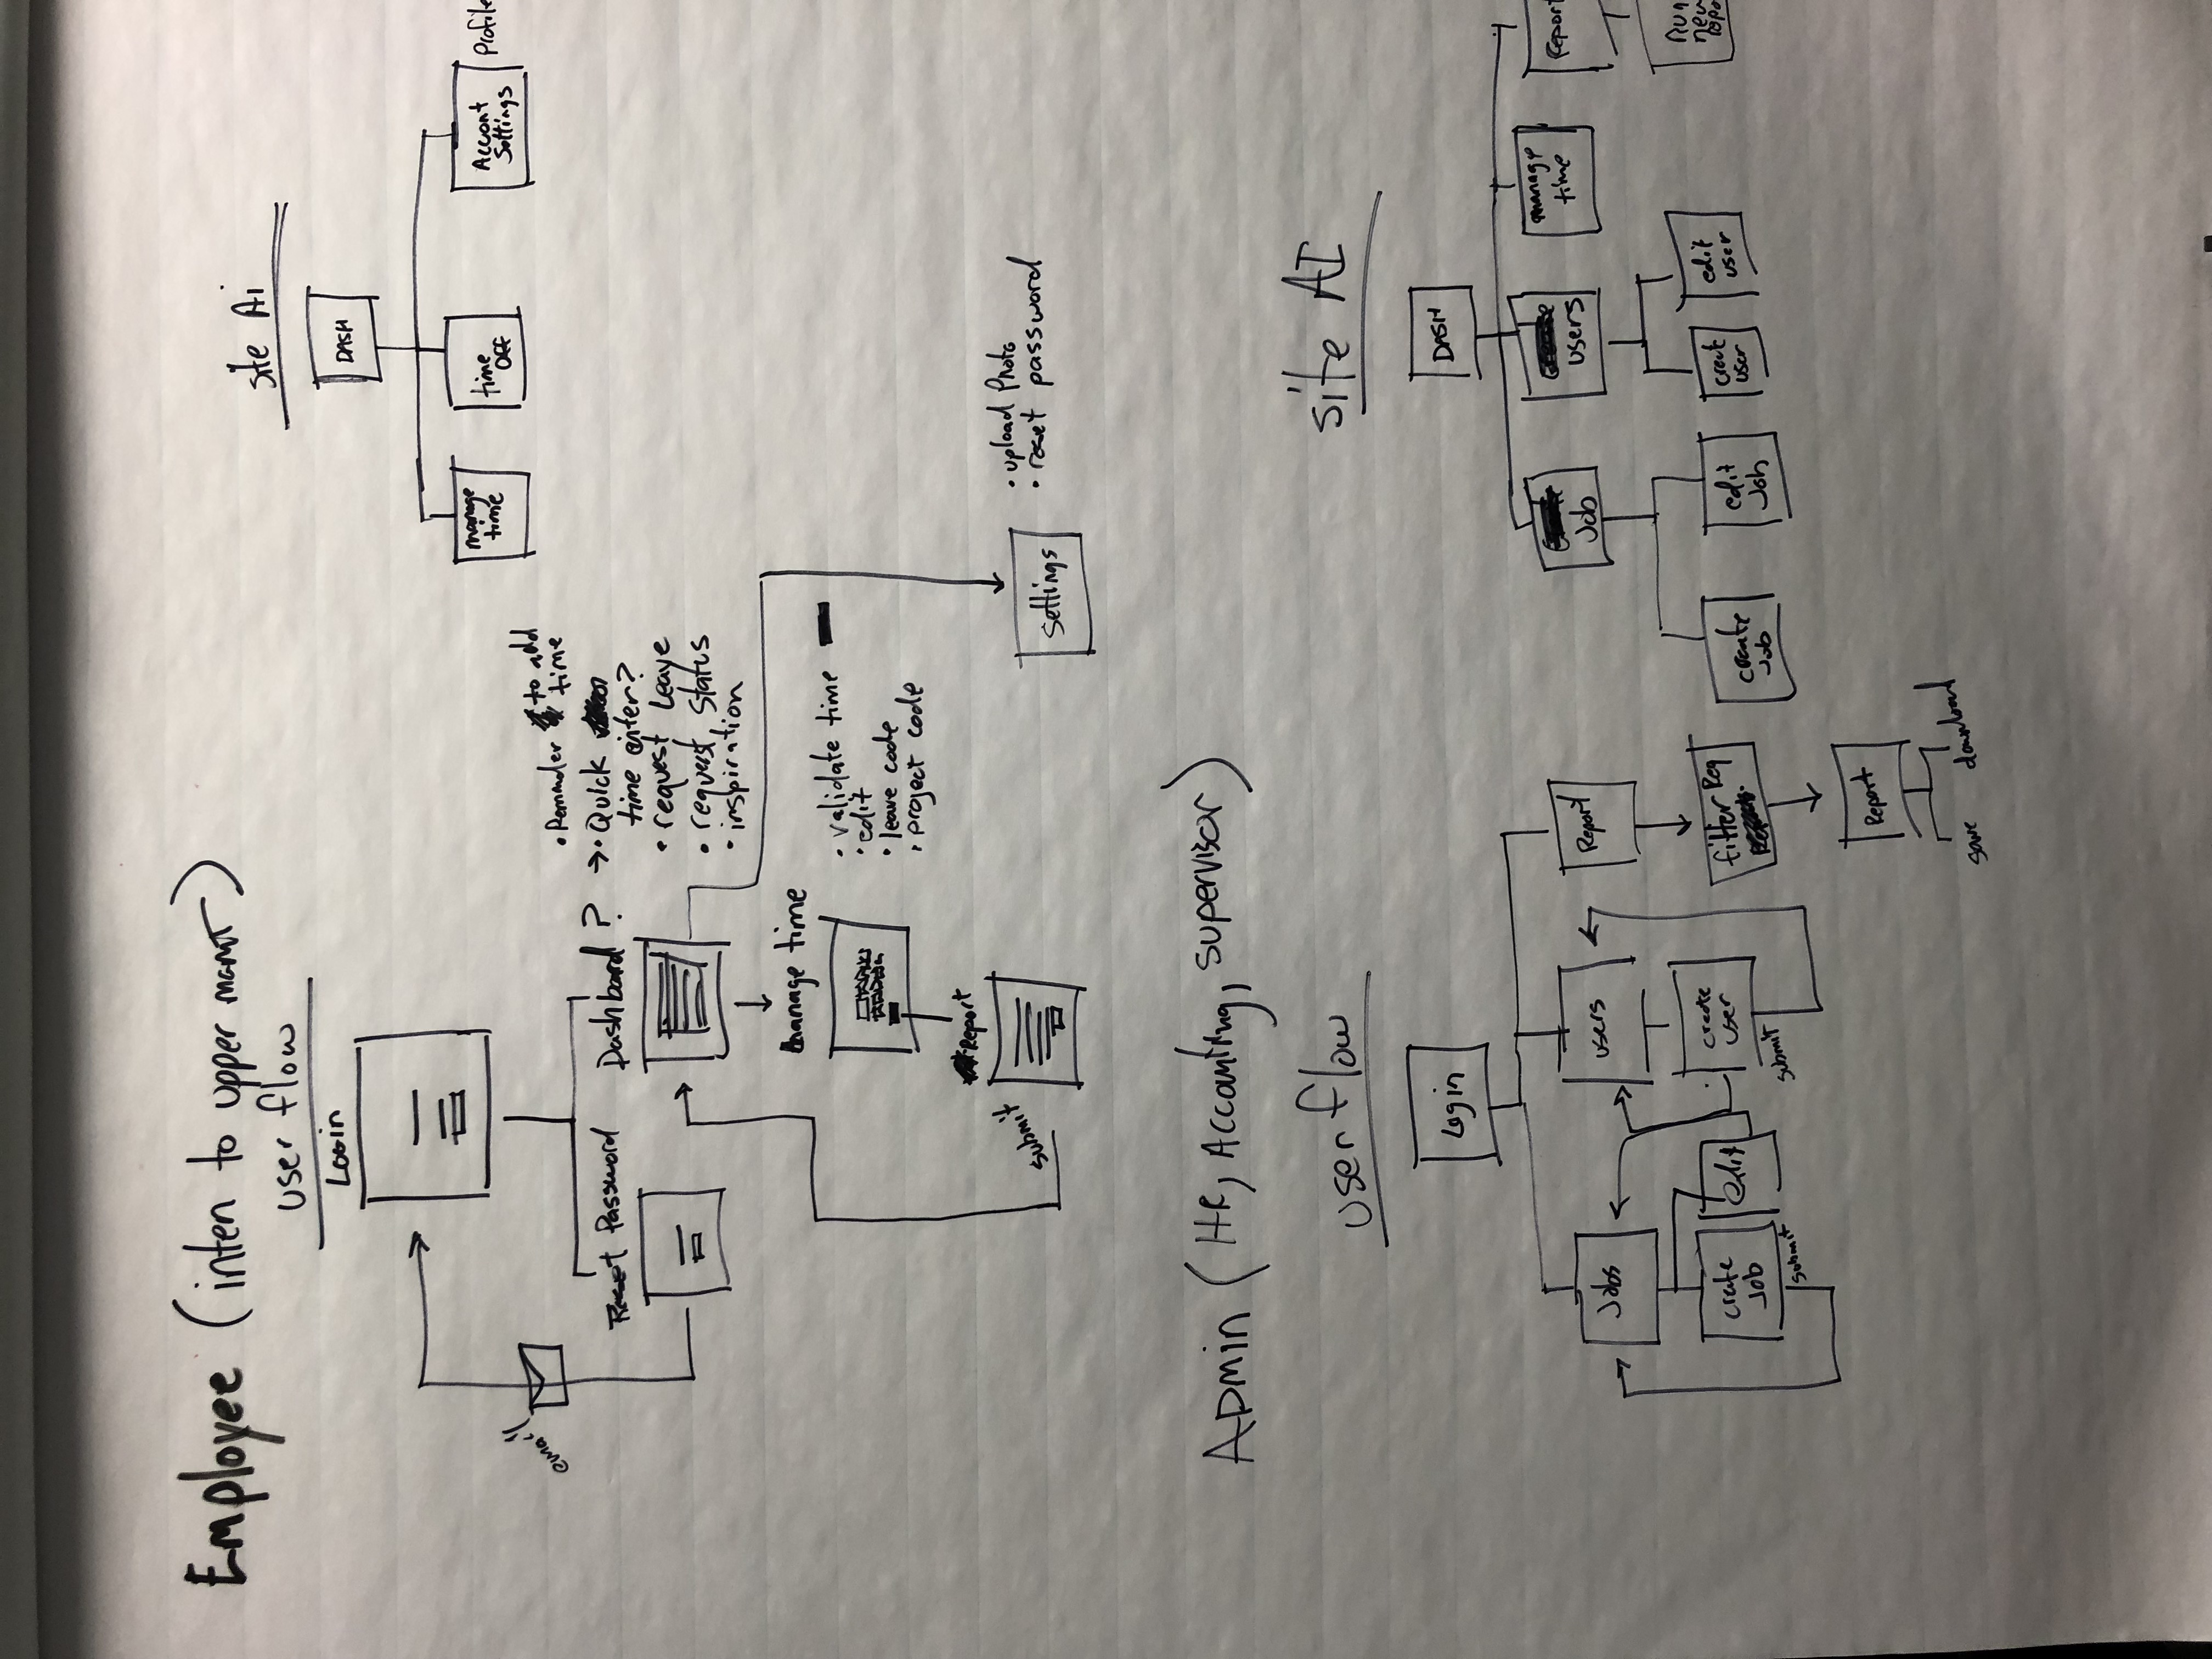 Employee (inten to upper mgmt)
user flow
Login
email
Reset Password
Dashboard ?
• Reminder to add
time
→• Quick
time enter?
• request Leave
• request status
• inspiration
manage time
• validate time
• edit
• leave code
• project code
Report
submit
settings
• upload Photo
• reset password
site Ai
DASH
manage
time
time
Off
Account
Settings
Profile
Admin (HR, Accounting, supervisor)
user flow
Login
Jobs
users
Report
create
Job
edit
submit
create
user
submit
filter Req
Report
save
download
site AI
DASH
Job
users
manage
time
Report
create
Job
edit
Job
create
user
edit
user
Run
new
repo